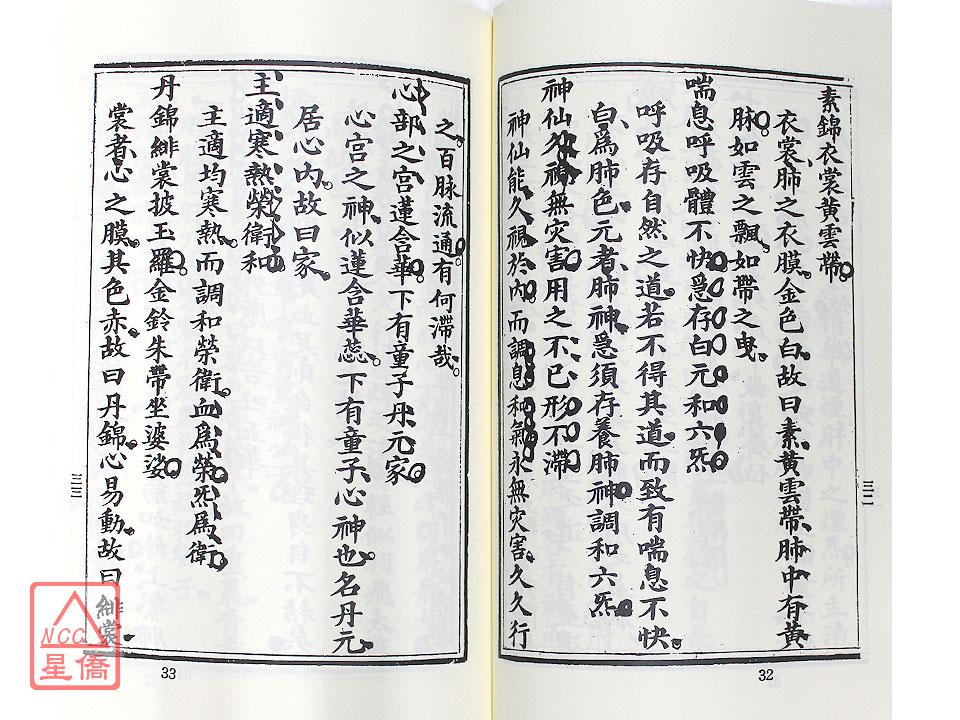 素錦衣裳黃雲帶。
衣裳、肺之衣膜。金色白。故曰素。黃雲帶、肺中有黃
脉。如雲之飄。如帶之曳。
喘息呼吸體不快。急存白元和六炁。
呼吸存自然之道。若不得其道。而致有喘息不快。
白、爲肺色。元者、肺神。急須存養肺神。調和六炁。
神仙久視無灾害。用之不已形不滯。
神仙能久視於內。而調息和氣。永無灾害。久久行
三二
32
之。百脉流通。有何滯哉。
心部之宮蓮含華。下有童子丹元家。
心宮之神、似蓮含華蕊。下有童子、心神也。名丹元
居心內。故曰家。
主適寒熱榮衛和。
主適均寒熱。而調和榮衛。血爲榮。炁爲衛。
丹錦緋裳披玉羅。金鈴朱帶坐婆娑。
裳者、心之膜。其色赤。故曰丹錦。心易動。故曰緋裳。
三三
33
NCC
星僑